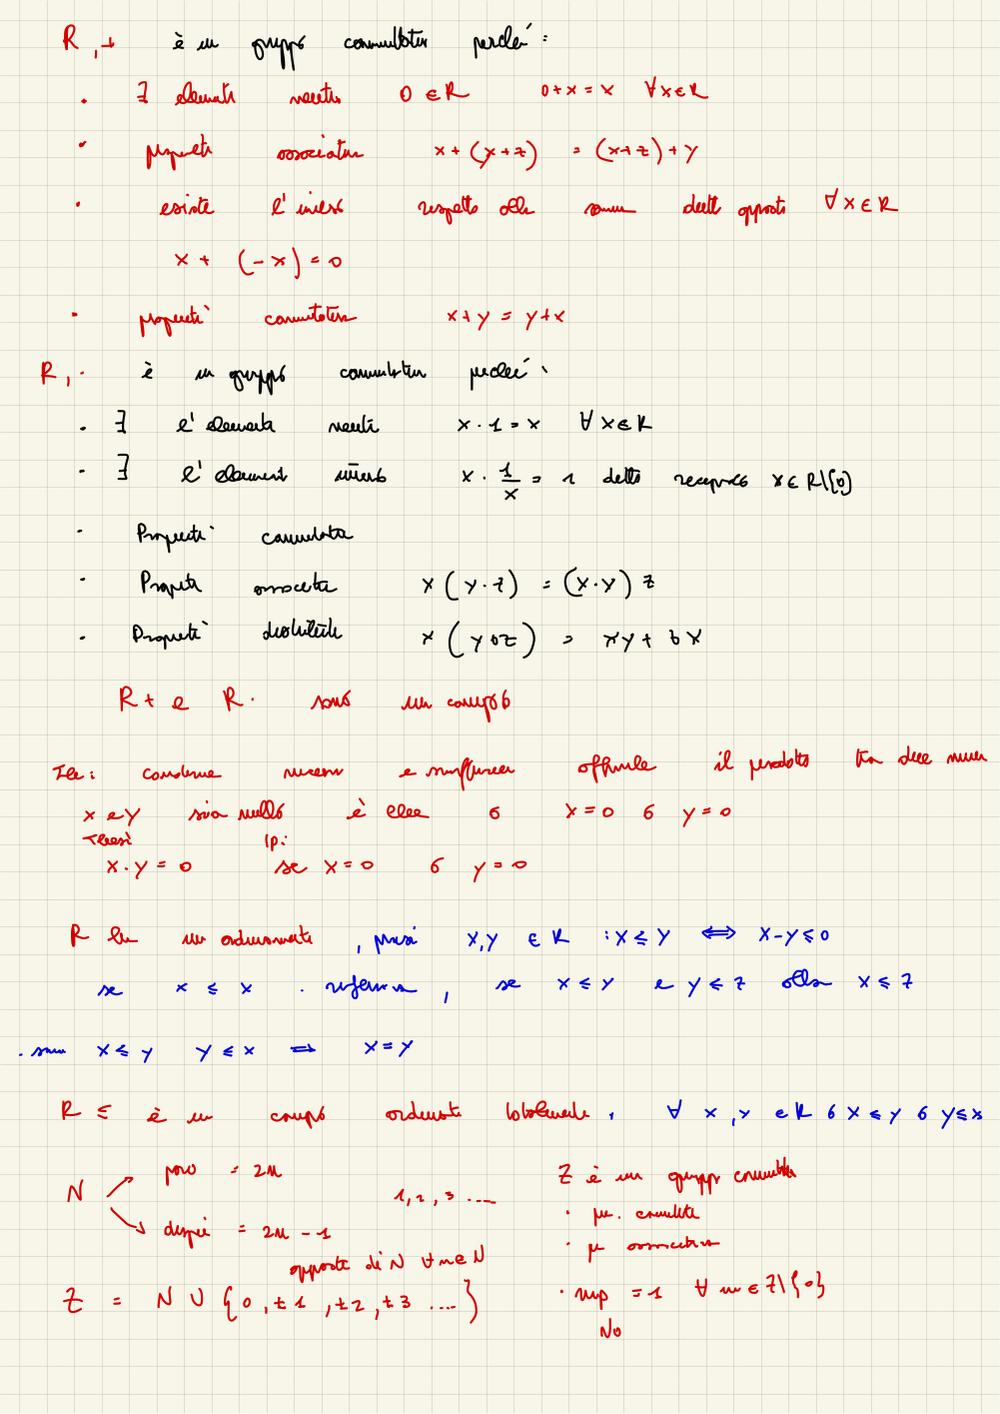 R, + è un gruppo commutativo perché:
· ∃ elemento neutro 0 ∈ R 0+x = x ∀x∈R
· proprietà associativa x + (y+z) = (x+z) + y
· esiste l'inverso rispetto alla somma detto opposto ∀x∈R
x + (-x) = 0
· proprietà commutativa x+y = y+x
R, · è un gruppo commutativo perché:
· ∃ l'elemento neutro x · 1 = x ∀x∈R
· ∃ l'elemento inverso x · 1/x = 1 detto reciproco x∈R\{0}
· Proprietà commutativa
· Proprietà associativa x (y·z) = (x·y) z
· Proprietà distributiva x ( ) = xy +
R + e R · sono un campo
Teo: condizione necess e sufficiente affinché il prodotto tra due numeri
x e y sia nullo è che o x=0 o y=0
Tesi: Ip:
x·y = 0 se x=0 o y=0
R ha un ordinamento, presi x,y ∈ R : x ≤ y ⟺ x-y ≤ 0
se x ≤ x · riflessiva, se x ≤ y e y ≤ z allora x ≤ z
· x ≤ y y ≤ x ⟹ x=y
R ≤ è un campo ordinato totalmente, ∀ x, y ∈ R o x ≤ y o y ≤ x
N pari = 2n 1, 2, 3 .... Z è un gruppo commutativo
dispari = 2n - 1 · pr. commutativa
opposto di N ∀n∈N · pr associativa
Z = N ∪ {0, ±1, ±2, ±3 ....} · = 1 ∀ m∈Z\{0}
No